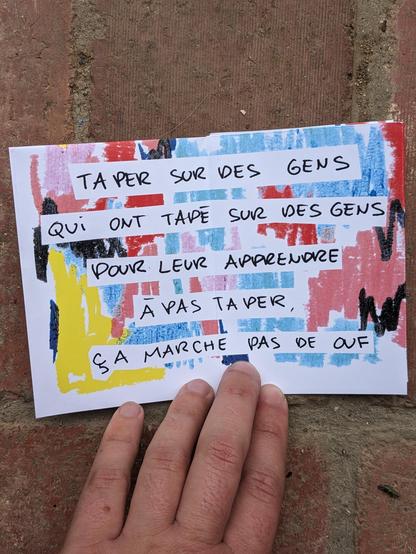 TAPER SUR DES GENS
QUI ONT TAPÉ SUR DES GENS
POUR LEUR APPRENDRE
À PAS TAPER,
ÇA MARCHE PAS DE OUF